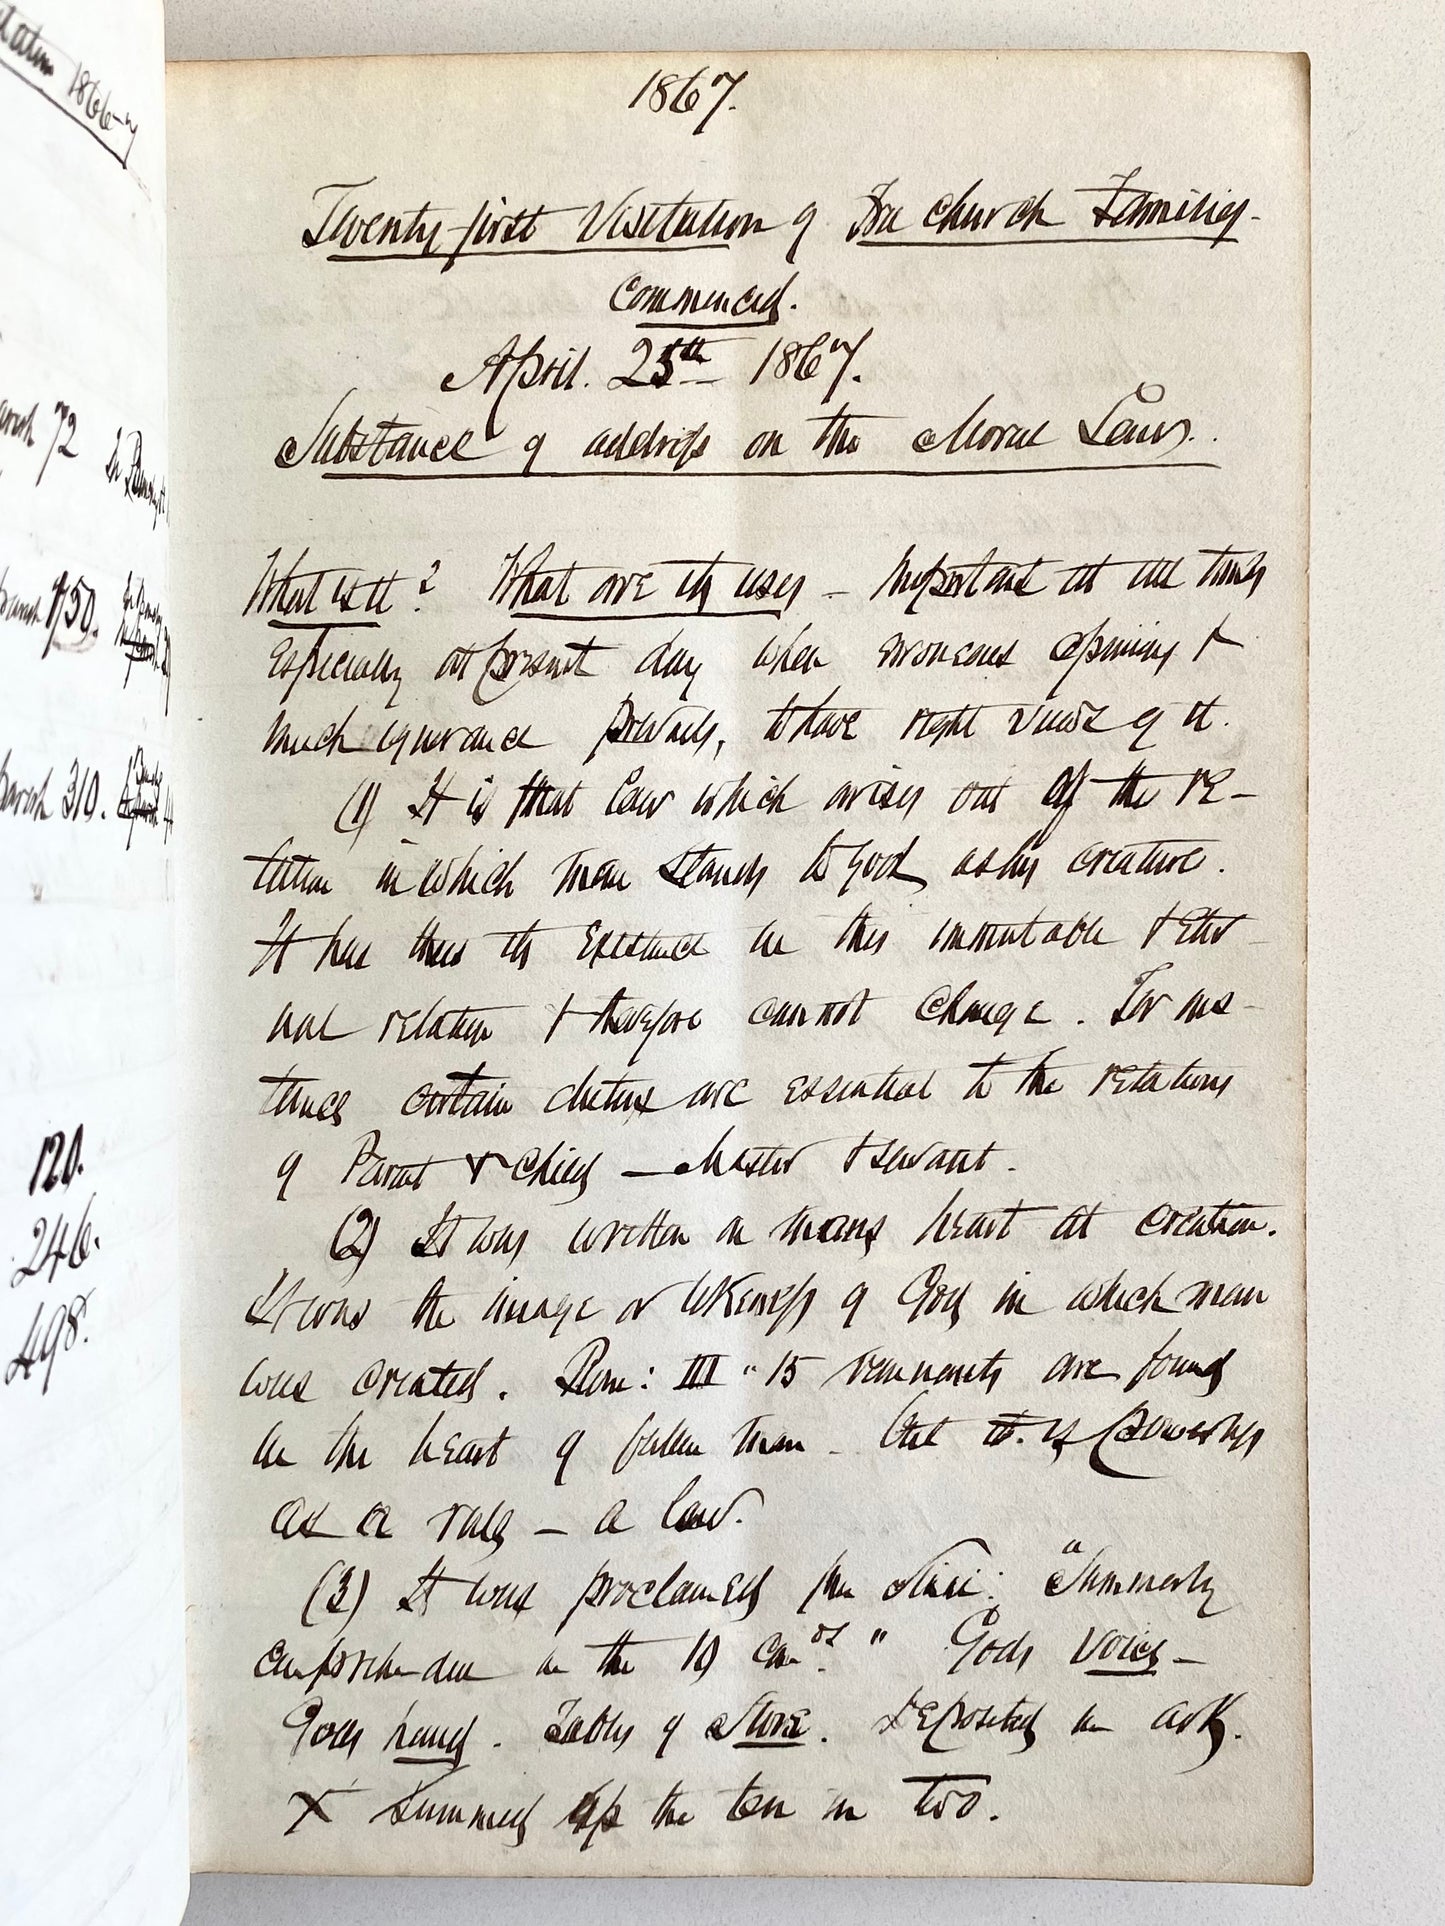 1867.
Twenty-first Visitation of Free Church Families
Commenced.
April. 25th 1867.
Substance of address on the Moral Law.
What is it? What are its uses – Important at all times
especially at present day when erroneous opinions &
much ignorance prevails, to have right views of it.
(1) It is that law which arises out of the re-
lation in which man stands to God as his creature.
It has thus its existence in this immutable & eter-
nal relation & therefore cannot change. For ins-
tance certain duties are essential to the relations
of Parent & child – Master & servant.
(2) It was written on mans heart at creation.
It was the image or likeness of God in which man
was created. Rom: III " 15 remnants are found
in the heart of fallen man – but it is powerless
as a rule – a law.
(3) It was proclaimed from Sinai: "Summarily
comprehended in the 10 Com.ds" Gods voice –
Gods hand. Tables of Stone. Deposited in ark.
X Summed up the ten in two.
1866-7
72
150.
310.
120.
246.
498.